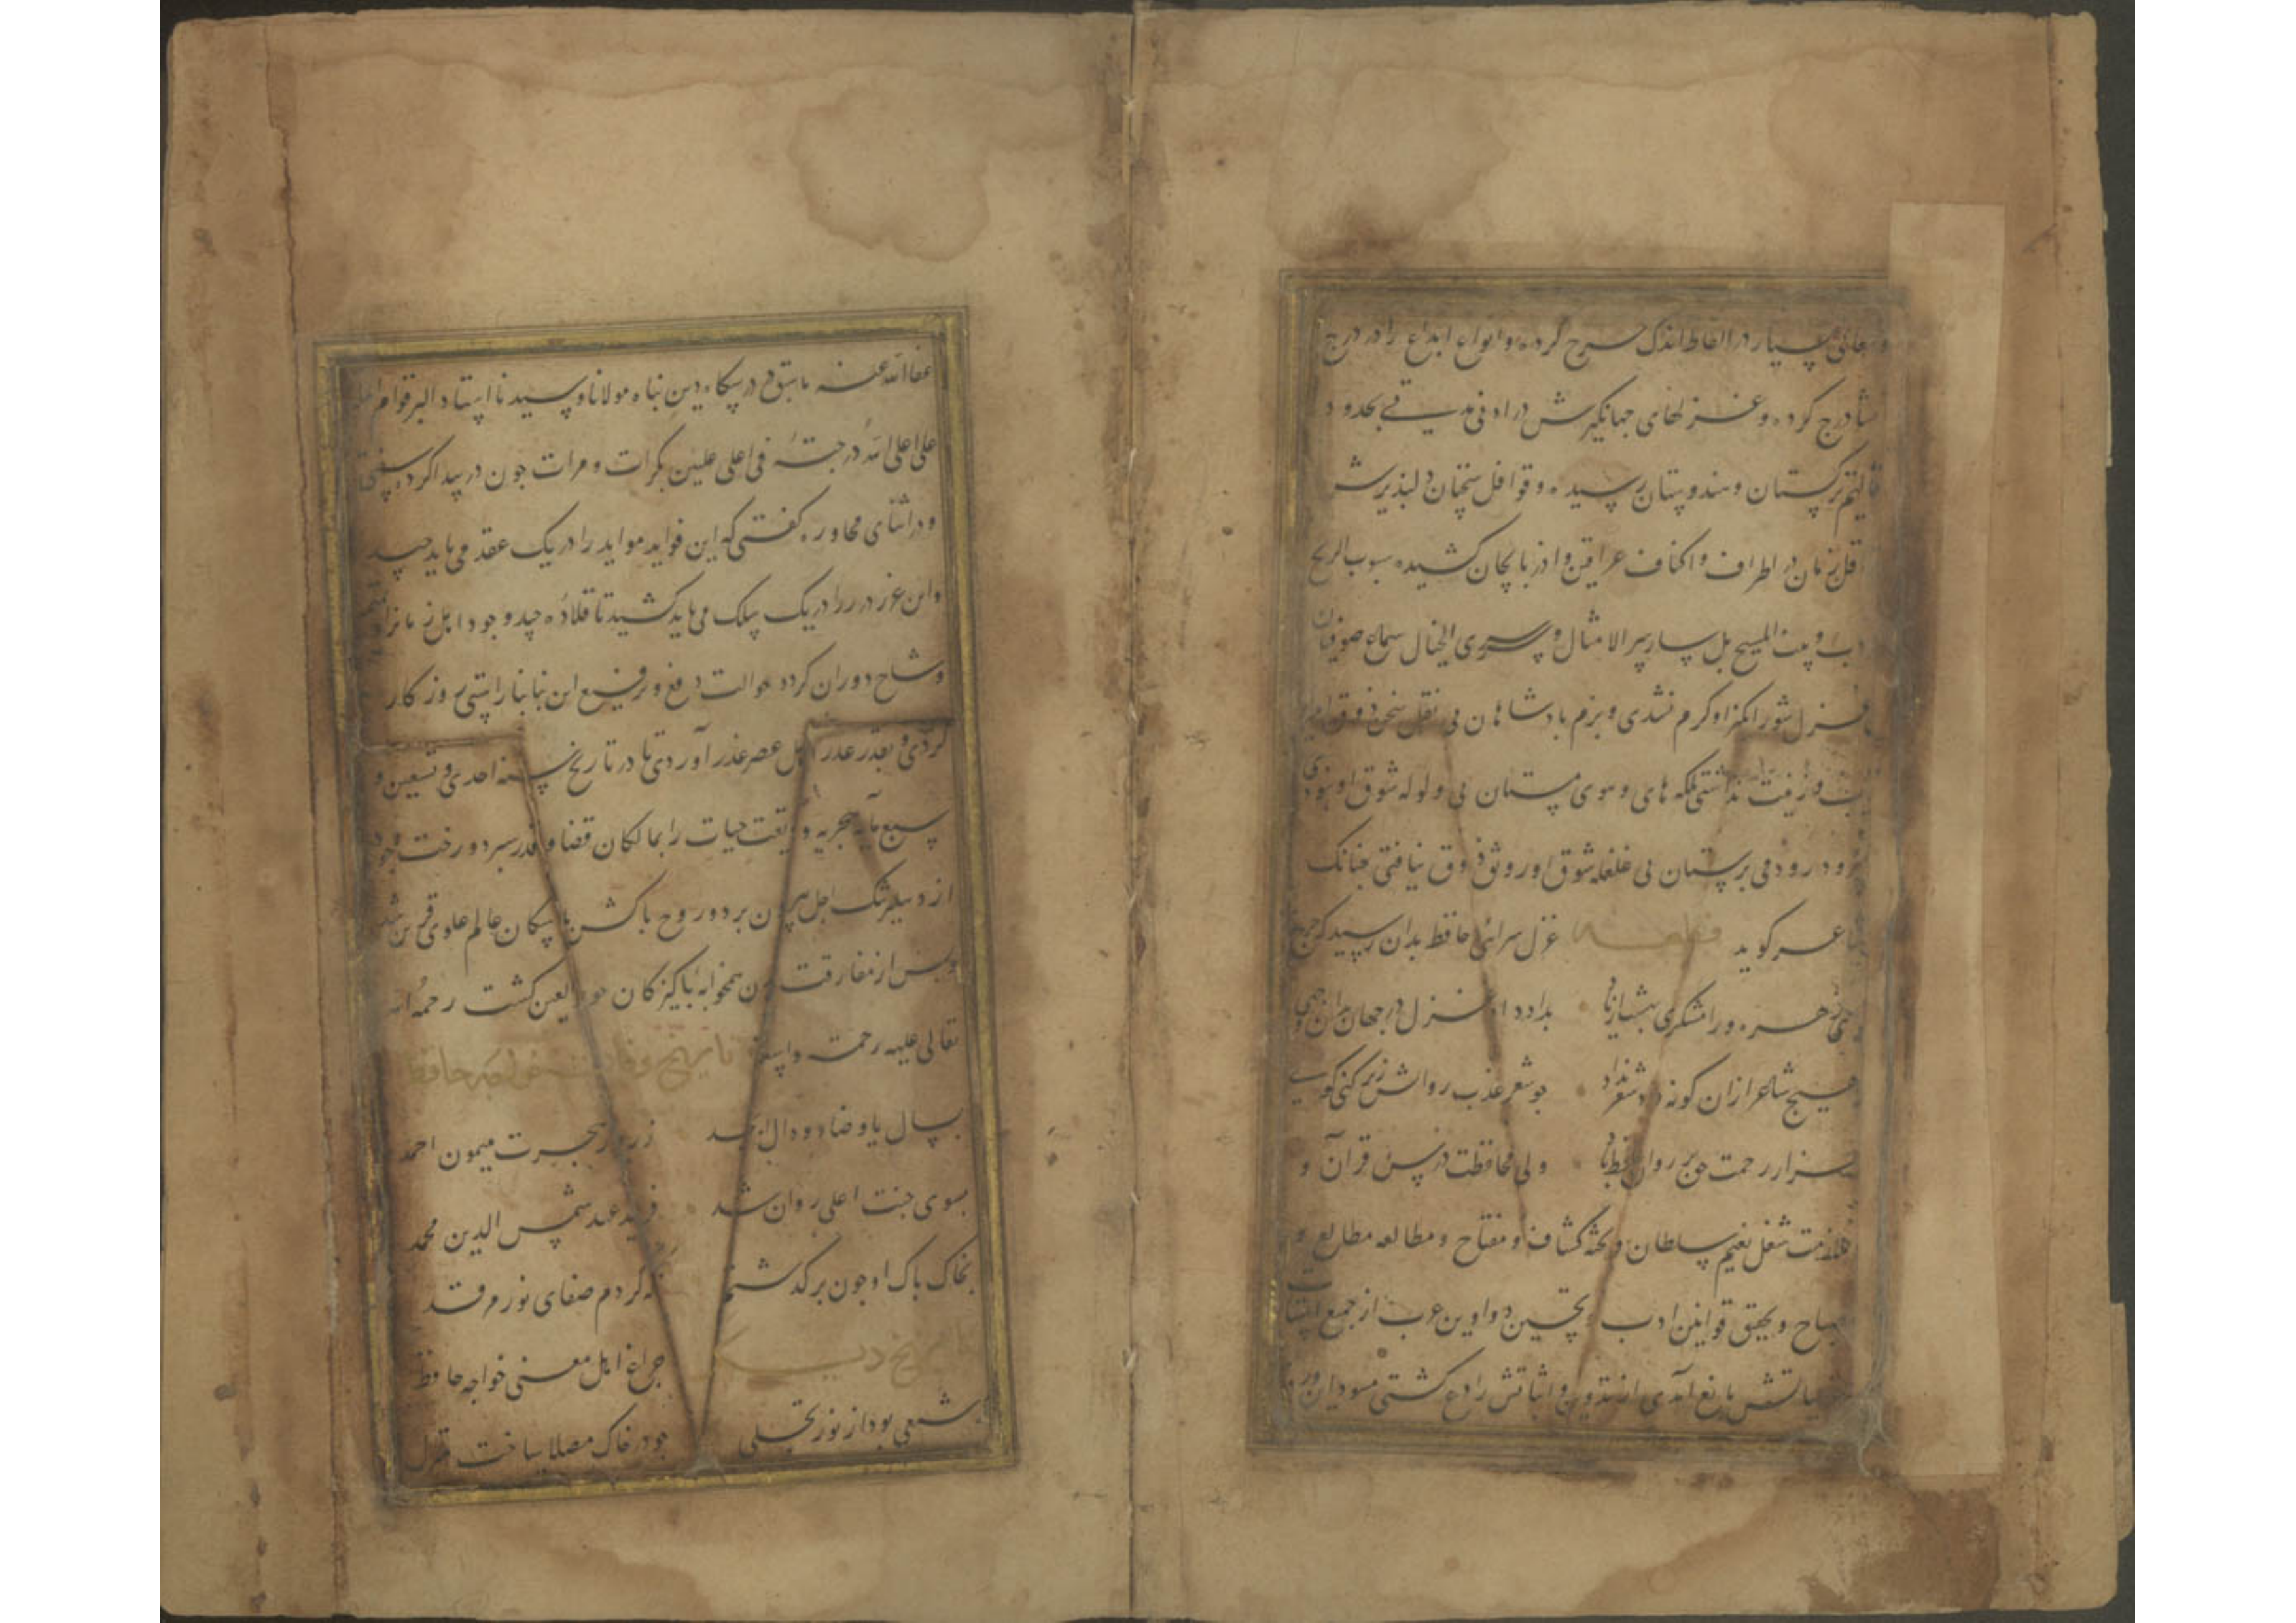 معانی بسیار در الفاظ اندک خرج کرده و انواع ابداع را در درج
انشا درج کرده و غزلهای جهانگیرش در ادنی مدتی بحدود
اقالیم ترکستان و هندوستان رسیده و قوافل سخنان دلپذیرش
در اقل زمان در اطراف و اکناف عراقین و اذربایجان کشیده هبوب الریح
دب المسیح بل سار سیر الامثال و سری الخیال سماع صوفیان
بی غزل شورانکیز او کرم نشدی و بزم بادشاهان بی نقل سخن ذوق امیز
زینت نداشتی بلکه های و هوی مستان بی ولوله شوق او نبودی
و سرود رود می برستان بی غلغله شوق او رونق ذوق نیافتی جنانک
شاعر کوید قطعه غزل سرائی حافظ بدان رسید که جرخ
زهره و رامشکری بداد داد غزل در جهان بدان وجهی
که هیچ شاعر ازان کونه داد شعر نداد جو شعر عذب روانش ز بر کنی کویی
هزار رحمت حق بر روان حافظ باد ولی محافظت درس قرآن و
ملازمت شغل تعلیم سلطان و تحشیه کشاف و مفتاح و مطالعه مطالع و
مصباح و تحقیق قوانین ادب و تحسین دواوین عرب از جمع اشتات
غزلیاتش مانع آمدی از تدوین و اثباتش رادع کشتی مسود این ورق
عفا الله عنه ما سبق در درسکاه دین بناه مولانا و سیدنا استاد البر قوام
علی اعلی الله درجته فی اعلی علیین بکرات و مرات جون در بیدا کرد سخن رفتی
و در اثنای محاوره کفتی که این فواید مواید را در یک عقد می باید
و این غرر درر را در یک سلک می باید کشید تا قلاده جید وجود اهل زمان
وشاح دوران کردد حوالت دفع و ترفیع این بنا بناراستی روزکار
کردی و بغدر اهل عصر عذر آوردی تا در تاریخ سنه احدی و تسعین و
سبع مآیه هجریه ودیعت حیات را بمالکان قضا و قدر سبرد و رخت وجود
از دهلیز تنک اجل بیرون برد و روح باکش با ساکان عالم علوی قرین شد
و بس از مفارقت بدن همخوابه باکیزکان حور العین کشت رحمه الله
تعالی علیه رحمة واسعة تاریخ وفات خواجه حافظ
بسال با و صاد و دال ابجد ز روز هجرت میمون احمد
بسوی جنت اعلی روان شد فرید عهد شمس الدین محمد
بخاک باک او جون برکذشتم نکه کردم صفای نور مرقد
تاریخ دیکر جراغ اهل معنی خواجه حافظ
که شمعی بود از نور تجلی جو در خاک مصلا ساخت منزل